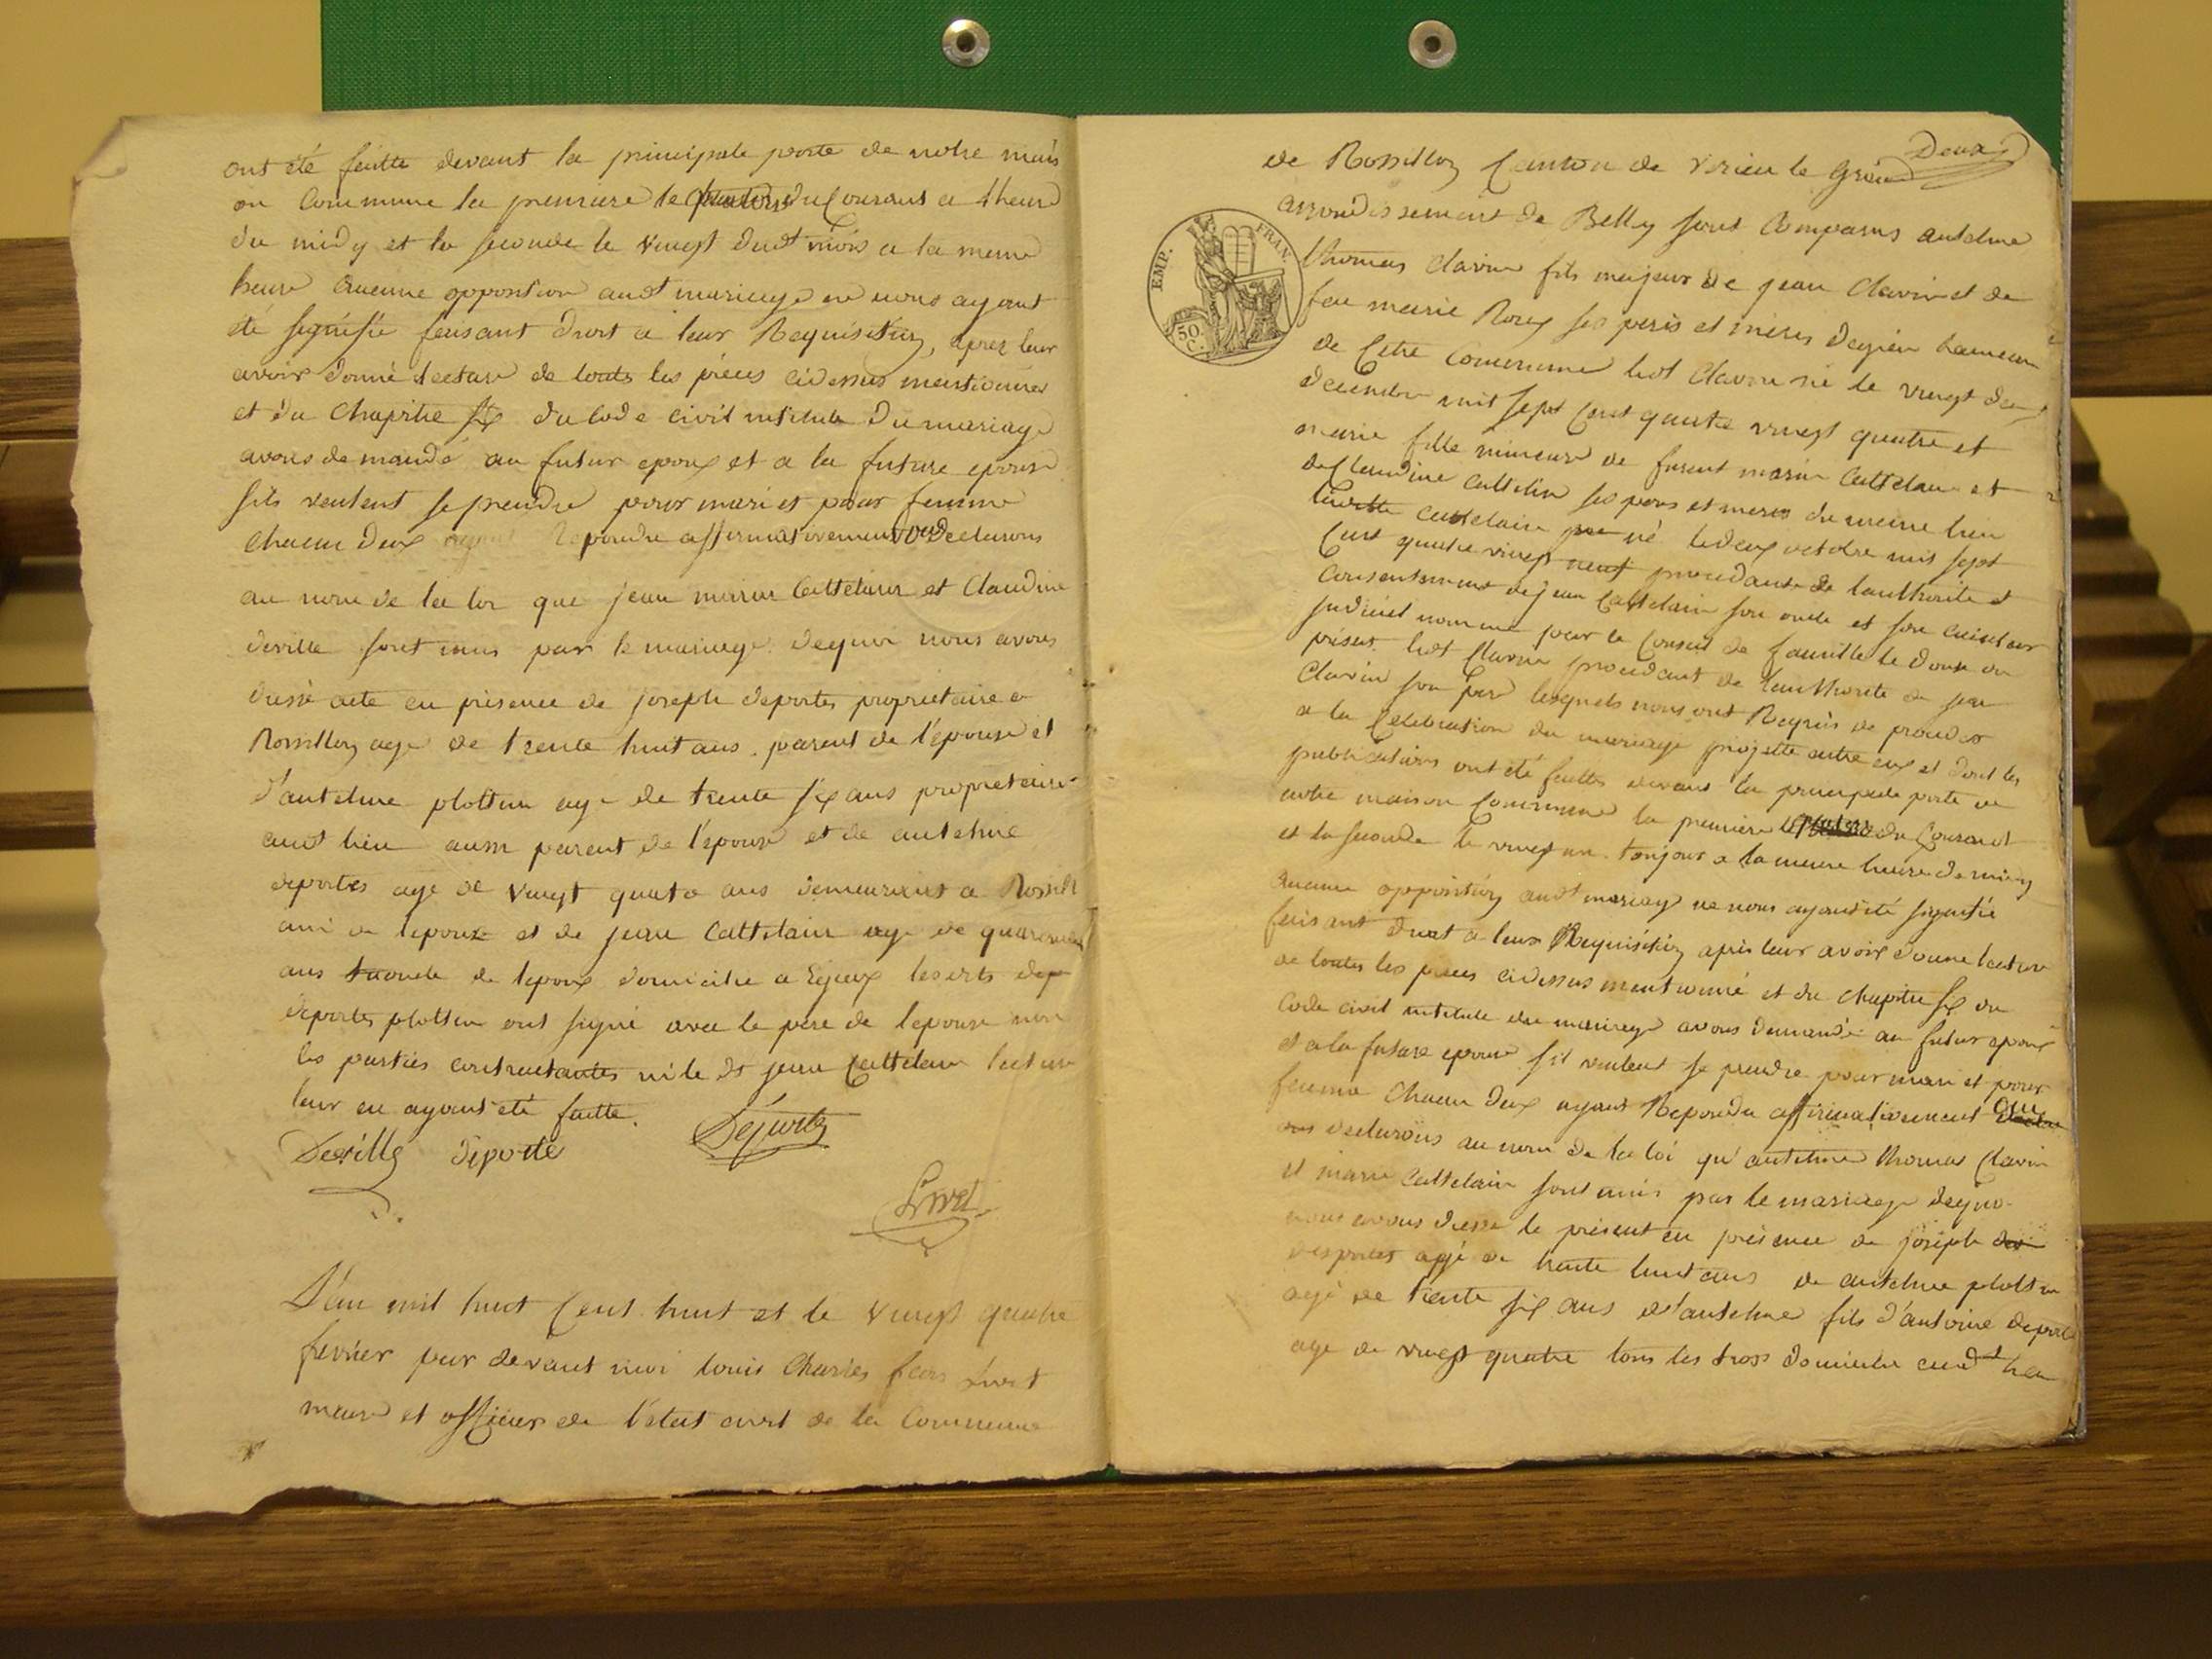 ont été faitte devant la principale porte de notre mais
on Commune la premiere le quatorze du Courant a lheure
du midy et la seconde le vingt dudt mois a la meme
heure Aucune opposition audt mariage ne nous ayant
été signifié faisant droit a leur Requisition, aprez leur
avoir donné lecture de touts les pièces cidessus mentionnés
et du Chapitre six du Code Civil intitulé Du mariage
avons demandé au futur epoux et a la future epouse
sils veulent se prendre pour mari et pour femme
chacun deux Repondu affirmativement declarons
au nom de la loi que jean Cattelain et Claudine
deville sont unis par le mariage dequoi nous avons
dressé acte en présence de joseph deportes proprietaire a
Rossillon agé de trente huit ans parent de l'épouse et
d'antelme plottin agé de trente six ans proprietaire
audt lieu aussi parent de l'épouse et de antelme
deportes agé de vingt quatre ans demeurant a Rossill
ami de lepoux et de jean Cattelain agé de quarante
ans oncle de lepoux domicilié a lesdts
deportes plottin ont signé avec le pere de lepouse non
les parties contractantes ni le dt jean Cattelain lecture
leur en ayant été faitte.
Deville deporte Deportes
Livet
L'an mil huit Cent huit et le vingt quatre
fevrier par devant moi louis Charles
maire et officier de l'état civil de la Commune
Deux
de Rossillon Canton de virieu le Grand
arrondissement de Belley sont Comparus antelme
thomas Clavin fils majeur de jean Clavin et de
feu marie ses peres et meres hameau
de Cette Commune ledt Clavin né le vingt
decembre mil sept Cent quatre vingt quatre et
marie fille mineure de Cattelain et
de Claudine Cattelin ses peres et meres du meme lieu
Cattelain né le deux octobre mil sept
Cent quatre vingt neuf procédante de lauthorité et
Consentement de jean Cattelain son oncle et son
judiciel nommé par le Conseil de famille le douze
présent ledt Clavin procedant de lauthorité de jean
Clavin son pere lesquels nous ont Requis de proceder
a la Celebration du mariage projetté entre eux et dont les
publications ont été faittes devant la principale porte de
notre maison Commune la premiere le du Courant
et la seconde le vingt un toujour a la meme heure de midy
Aucune opposition audt mariage ne nous ayant été signifié
faisant droit a leur Requisition après leur avoir donné lecture
de toutes les pieces cidessus mentionné et du Chapitre six du
Code civil intitulé du mariage avons demandé au futur epoux
et a la future epouse sil veulent se prendre pour mari et pour
femme Chacun deux ayant Repondu affirmativement
declarons au nom de la loi qu'antelme thomas Clavin
et marie Cattelain sont unis par le mariage dequoi
nous avons dressé le présent en présence de joseph
desportes agé de trente huit ans de antelme plottin
agé de trente six ans d'antelme fils d'antoine deport
agé de vingt quatre tous les trois domicilié audt lieu